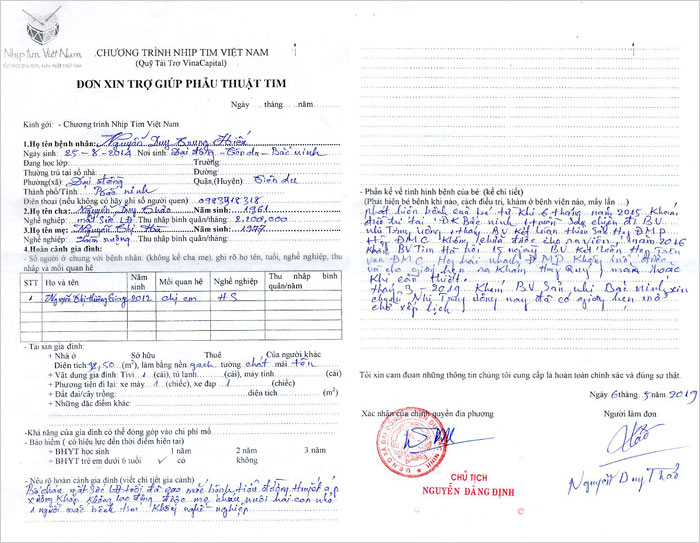 Nhịp tim Việt Nam
CHƯƠNG TRÌNH NHỊP TIM VIỆT NAM
(Quỹ Tài Trợ VinaCapital)
ĐƠN XIN TRỢ GIÚP PHẪU THUẬT TIM
Ngày .... tháng .... năm..........
Kính gởi: - Chương trình Nhịp Tim Việt Nam
1.Họ tên bệnh nhân: Nguyễn Duy Trung Hiếu
Ngày sinh: 25-8-2014 Nơi sinh Đại Đồng - Tiên du - Bắc ninh
Đang học lớp: Trường:
Thường trú tại số nhà: Đường:
Phường(xã): Đại Đồng Quận,(Huyện) Tiên du
Thành phố/Tỉnh Bắc ninh
Điện thoại (nếu không có hãy ghi số người quen) 0983918318
2.Họ tên cha: Nguyễn Duy Thảo Năm sinh: 1961
Nghề nghiệp: mất sức LĐ Thu nhập bình quân/tháng: 2.100,000
3.Họ tên mẹ: Nguyễn Thị Năm sinh: 1977
Nghề nghiệp: Làm ruộng Thu nhập bình quân/tháng:
4.Hoàn cảnh gia đình:
- Số người ở chung với bệnh nhân: (không kể cha mẹ), ghi rõ họ tên, tuổi, nghề nghiệp, thu
nhập và mối quan hệ
STT Họ và tên Năm sinh Mối quan hệ Nghề nghiệp Thu nhập bình quân/năm
1 Nguyễn Thị Hương Giang 2012 chị em HS
- Tài sản gia đình:
+ Nhà ở Sở hữu Thuê Của người khác
Diện tích 92,50 (m²), làm bằng nền gạch tường chát mái tôn
+ Vật dụng gia đình Tivi 1 (cái), tủ lạnh (cái), máy tính (cái)
+ Phương tiện đi lại: xe máy 1 (chiếc), xe đạp 1 (chiếc)
+ Đất đai/cây trồng: diện tích (m²)
+ Những đặc điểm khác:
-Khả năng của gia đình có thể đóng góp vào chi phí mổ
- Bảo hiểm ( có hiệu lực đến thời điểm hiện tại)
+ BHYT học sinh 1 năm 2 năm 3 năm
+ BHYT trẻ em dưới 6 tuổi ✓ có không
- Nêu rõ hoàn cảnh gia đình (viết chi tiết gia cảnh)
Bố cháu mất sức LĐ tuổi đã cao mắc bệnh tiểu đường
xương khớp. Không lao động được mẹ cháu nuôi hai con nhỏ
1 người mắc bệnh tim. Không nghề nghiệp.
- Phần kể về tình hình bệnh của bé: (kể chi tiết)
(Phát hiện bệnh khi nào, cách điều trị nào, khám ở bệnh viện nào, mấy lần ...)
phát hiện bệnh của bé từ khi 6 tháng năm 2015 Khám
điều trị tại: ĐK Bắc ninh 1 tuần sau chuyển đi BV
nhi Trung ương 1 tháng BV kết luận
năm 2016
Khám BV Tim Hà nội 15 ngày BV Kết luận
và cho giấy hẹn ra Khám
Khi cần thiết.
tháng 3 - 2019 Khám BV Sản nhi Bắc Ninh xin
chuyển Nhi Trung ương nay đã có giấy hẹn mổ
chờ xếp lịch
Tôi xin cam đoan những thông tin chúng tôi cung cấp là hoàn toàn chính xác và đúng sự thật.
Ngày 6 tháng 5 năm 2019
Xác nhận của chính quyền địa phương Người làm đơn
CHỦ TỊCH
NGUYỄN ĐĂNG ĐỊNH
Nguyễn Duy Thảo